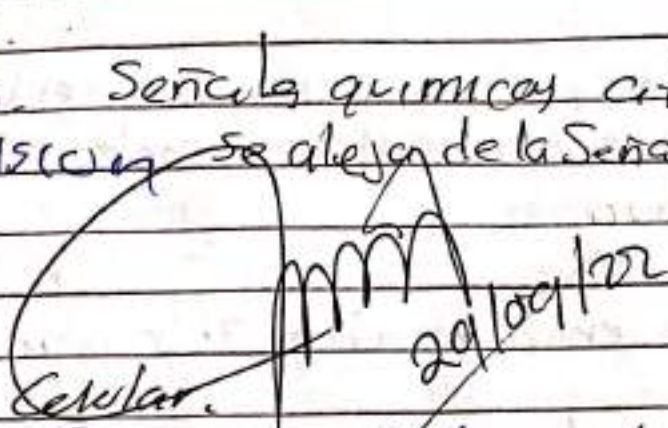 Señals quimicas
se aleja de la Seña
29/09/22
Celular.